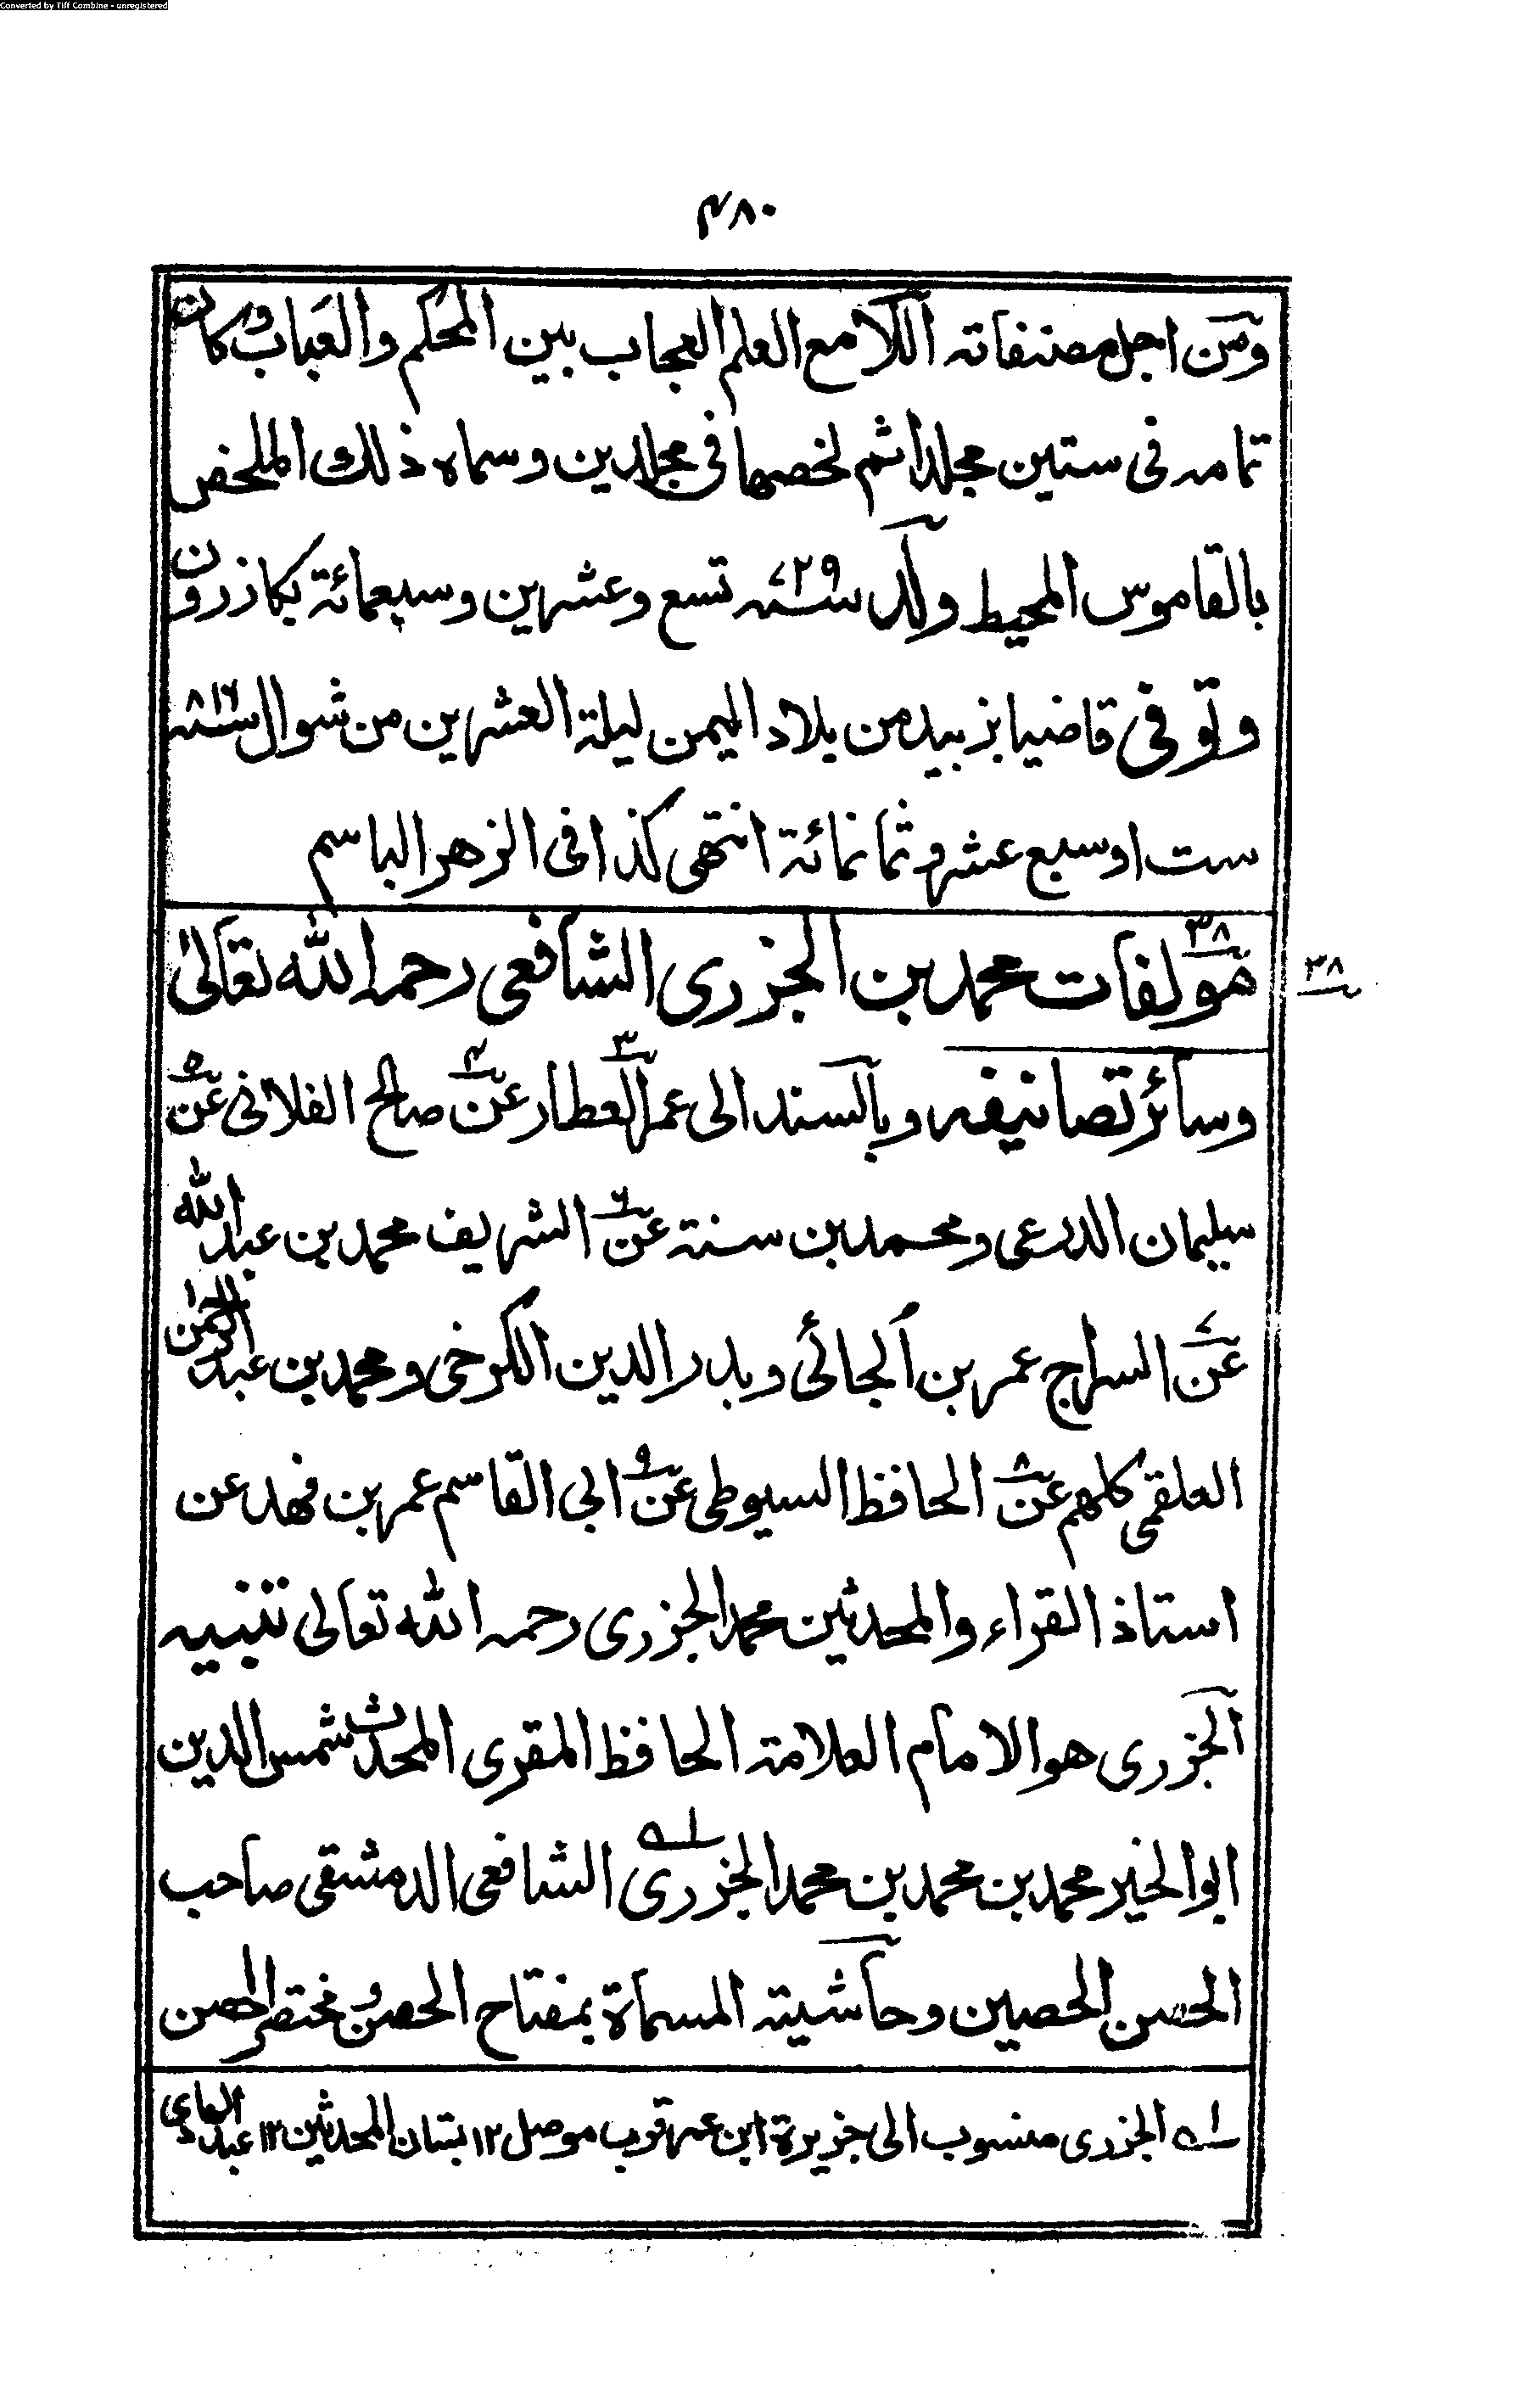 Converted by Tiff Combine - unregistered
۴۸۰
ومن اجل مصنفاته اللامع العلم العجاب بين المحكم والعباب وكان
تمامه فى ستين مجلدا ثم لخصها فى مجلدين وسماه ذلك الملخص
بالقاموس المحيط ولد سنه ۷۲۹ تسع وعشرين وسبعمائة بكازرون
وتوفى قاضيا بزبيد من بلاد اليمن ليلة العشرين من شوال سنه ۸۱۶
ست اوسبع عشر وثمانمائة انتهى كذا فى الزهر الباسم
۳۸ مؤلفات محمد بن الجزرى الشافعى رحمه الله تعالى
۳۸
وسائر تصانيفه وبالسند الى عمر العطار ۳ عن ۴ صالح الفلانى عن ۵
سليمان الدرعى ومحمد بن سنة عن ۶ الشريف محمد بن عبد الله
عن ۷ السراج عمر بن الجائى وبدر الدين الكرخى ومحمد بن عبد الرحمن
العلقمى كلهم عن ۸ الحافظ السيوطى عن ۹ ابى القاسم عمر بن فهد عن ۱۰
استاذ القراء والمحدثين محمد الجزرى رحمه الله تعالى تنبيه
الجزرى هو الامام العلامة الحافظ المقرى المحدث شمس الدين
ابو الخير محمد بن محمد بن محمد الجزرى ۱ه الشافعى الدمشقى صاحب
الحصن الحصين وحاشيته المسماة بمفتاح الحصن ومختصر الحصن
۱ه الجزرى منسوب الى جزيرة ابن عمر قريب موصل ۱۲ بستان المحدثين ۱۲ عبد الهادى